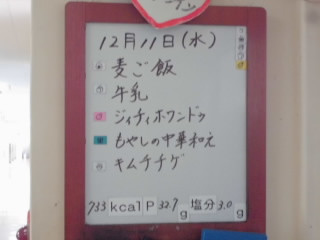 12月11日(水)
麦ご飯
牛乳
ジィティホワンドゥ
もやしの中華和え
キムチチゲ
733 kcal P 32.7 g 塩分 3.0 g